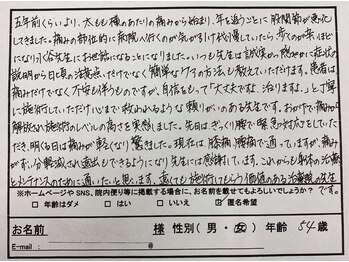 五年前くらいより、太もも横のあたりの痛みから始まり、年を追うごとに股関節が悪化
してきました。痛みの部位的に病院へ行くのが気がひけ我慢していたら、歩くのが
になり 先生にお世話になることに いつも先生は誠実かつ穏やかに症状の
説明から日頃の注意点だけでなく簡単なケアの方法も教えていただけます。患者は
痛みだけでなく不安も伴うものですが、自信をもって"大丈夫です、治ります、"と丁寧
に施術していただけ心まで救われるような頼りがいのある先生です。おかげで痛みが
解放され施術のレベルの高さを実感しました。先日はぎっくり腰で緊急対応をしていた
だき、明くる日は痛みが軽くなり驚きました。現在は、膝痛、腰痛で通っていますが、痛み
が 軽減され遠出もできるようになり先生には感謝しています。これからも身体の治療
とメンテナンスのために通いたいと思います。遠くても施術してもらう価値のある治療院の先生
です。
※ホームページやSNS、院内便り等に掲載する場合に、お名前を載せてもよろしいでしょうか?
□ 年齢はダメ □ はい □ いいえ ☑ 匿名希望
お名前 様 性別(男・女) 年齢 54 歳
E-mail : @